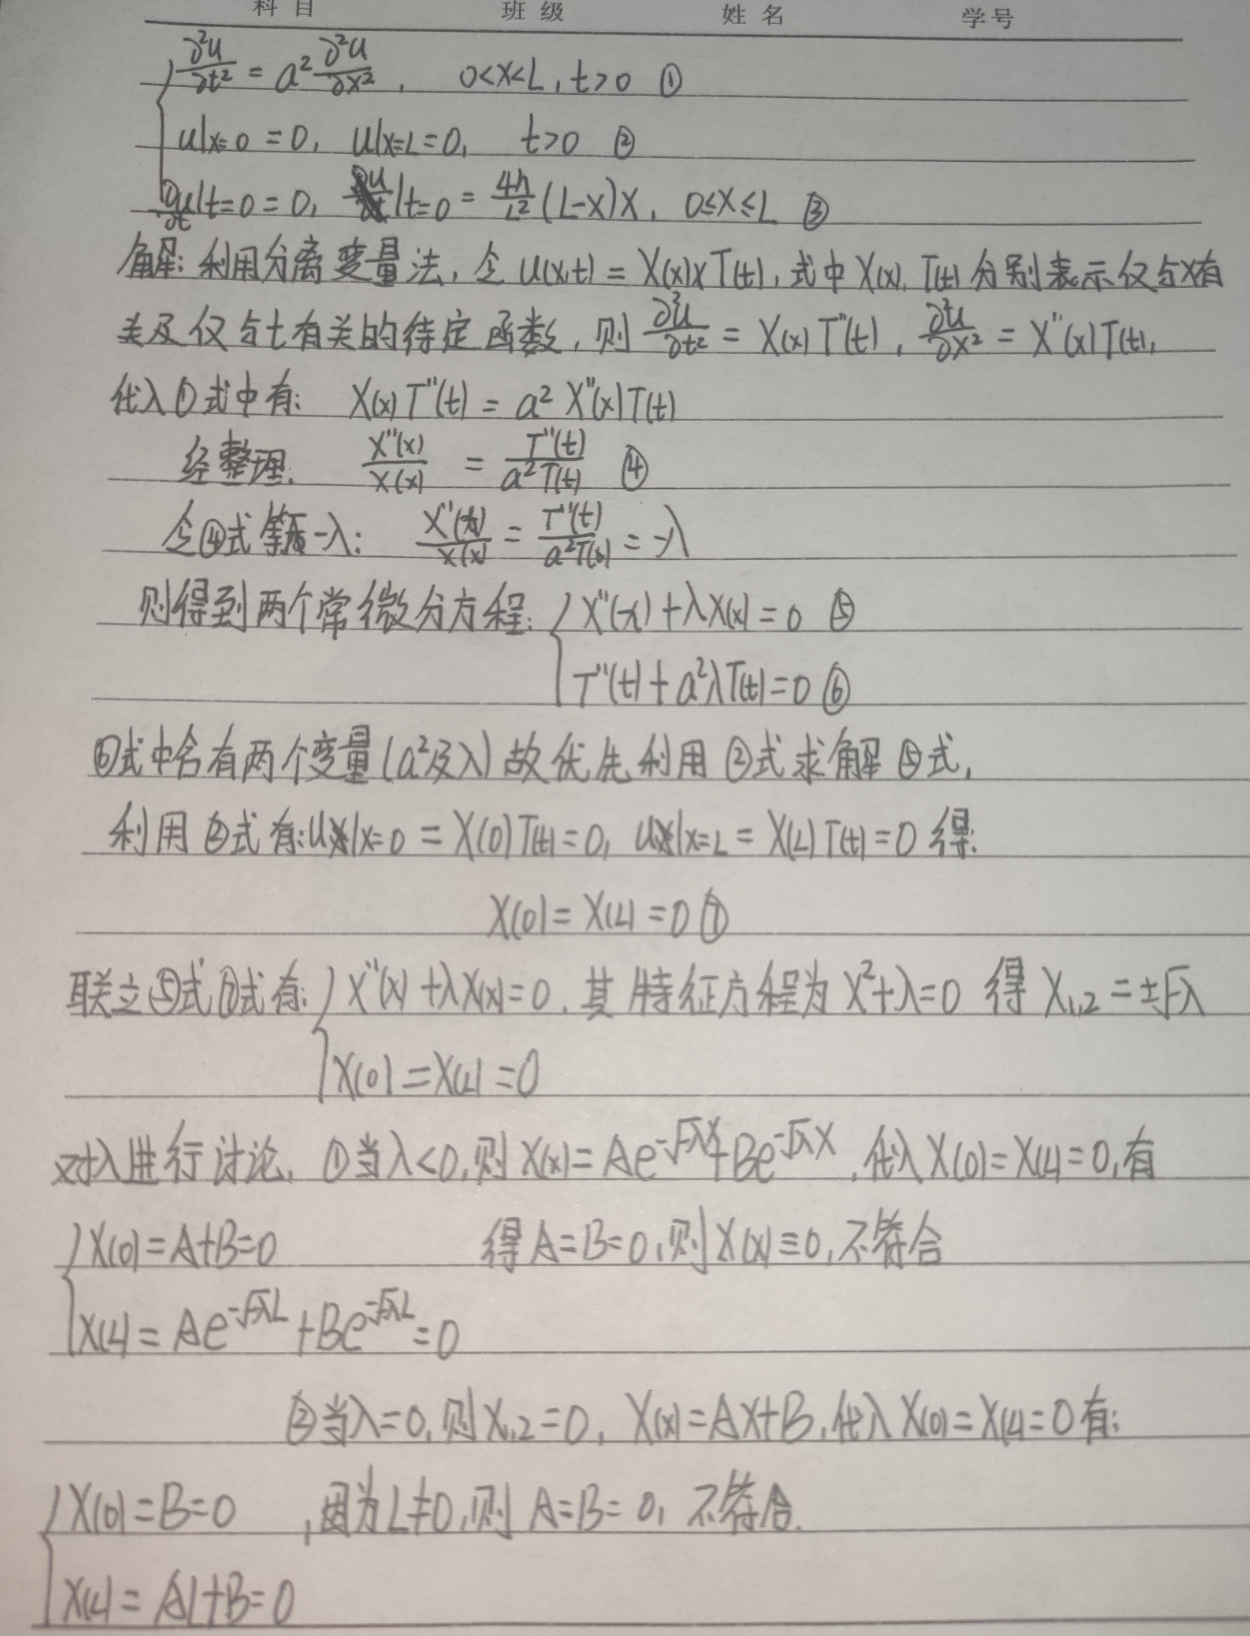 科目 班级 姓名 学号
∂²u/∂t² = a² ∂²u/∂x², 0<x<L, t>0 ①
u|x=0 = 0, u|x=L = 0, t>0 ②
∂u/∂t|t=0 = 0, |t=0 = 4h/L² (L-x)x, 0≤x≤L ③
解: 利用分离变量法, 令 u(x,t) = X(x)×T(t), 式中 X(x), T(t) 分别表示仅与x有
关及仅与t有关的待定函数, 则 ∂²u/∂t² = X(x)T''(t), ∂²u/∂x² = X''(x)T(t),
代入①式中有: X(x)T''(t) = a² X''(x)T(t)
经整理: X''(x)/X(x) = T''(t)/a²T(t) ④
令④式等于-λ: X''(x)/X(x) = T''(t)/a²T(t) = -λ
则得到两个常微分方程: X''(x)+λX(x)=0 ⑤
T''(t)+a²λT(t)=0 ⑥
⑥式中含有两个变量(a²及λ)故优先利用②式求解⑤式,
利用②式有: u|x=0 = X(0)T(t)=0, u|x=L = X(L)T(t)=0 得:
X(0)=X(L)=0 ⑦
联立⑤式⑦式有: X''(x)+λX(x)=0, 其特征方程为 X²+λ=0 得 X₁,₂=±√-λ
X(0)=X(L)=0
对λ进行讨论, ①当λ<0, 则 X(x)=Ae^-√-λx+Be^-√-λx, 代入X(0)=X(L)=0, 有
X(0)=A+B=0 得A=B=0, 则X(x)≡0, 不符合
X(L)=Ae^-√-λL+Be^-√-λL=0
②当λ=0, 则X₁,₂=0, X(x)=Ax+B, 代入X(0)=X(L)=0有:
X(0)=B=0 , 因为L≠0, 则A=B=0, 不符合.
X(L)=AL+B=0